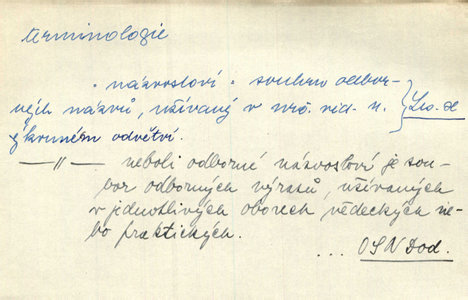 terminologie
"názvosloví" souhrn odbor-
ných názvů, užívaný v urč. věd. n.
výkonném odvětví.
—"— neboli odborné názvosloví je sou-
bor odborných výrazů, užívaných
v jednotlivých oborech vědeckých ne-
bo praktických.
... OSN Dod.